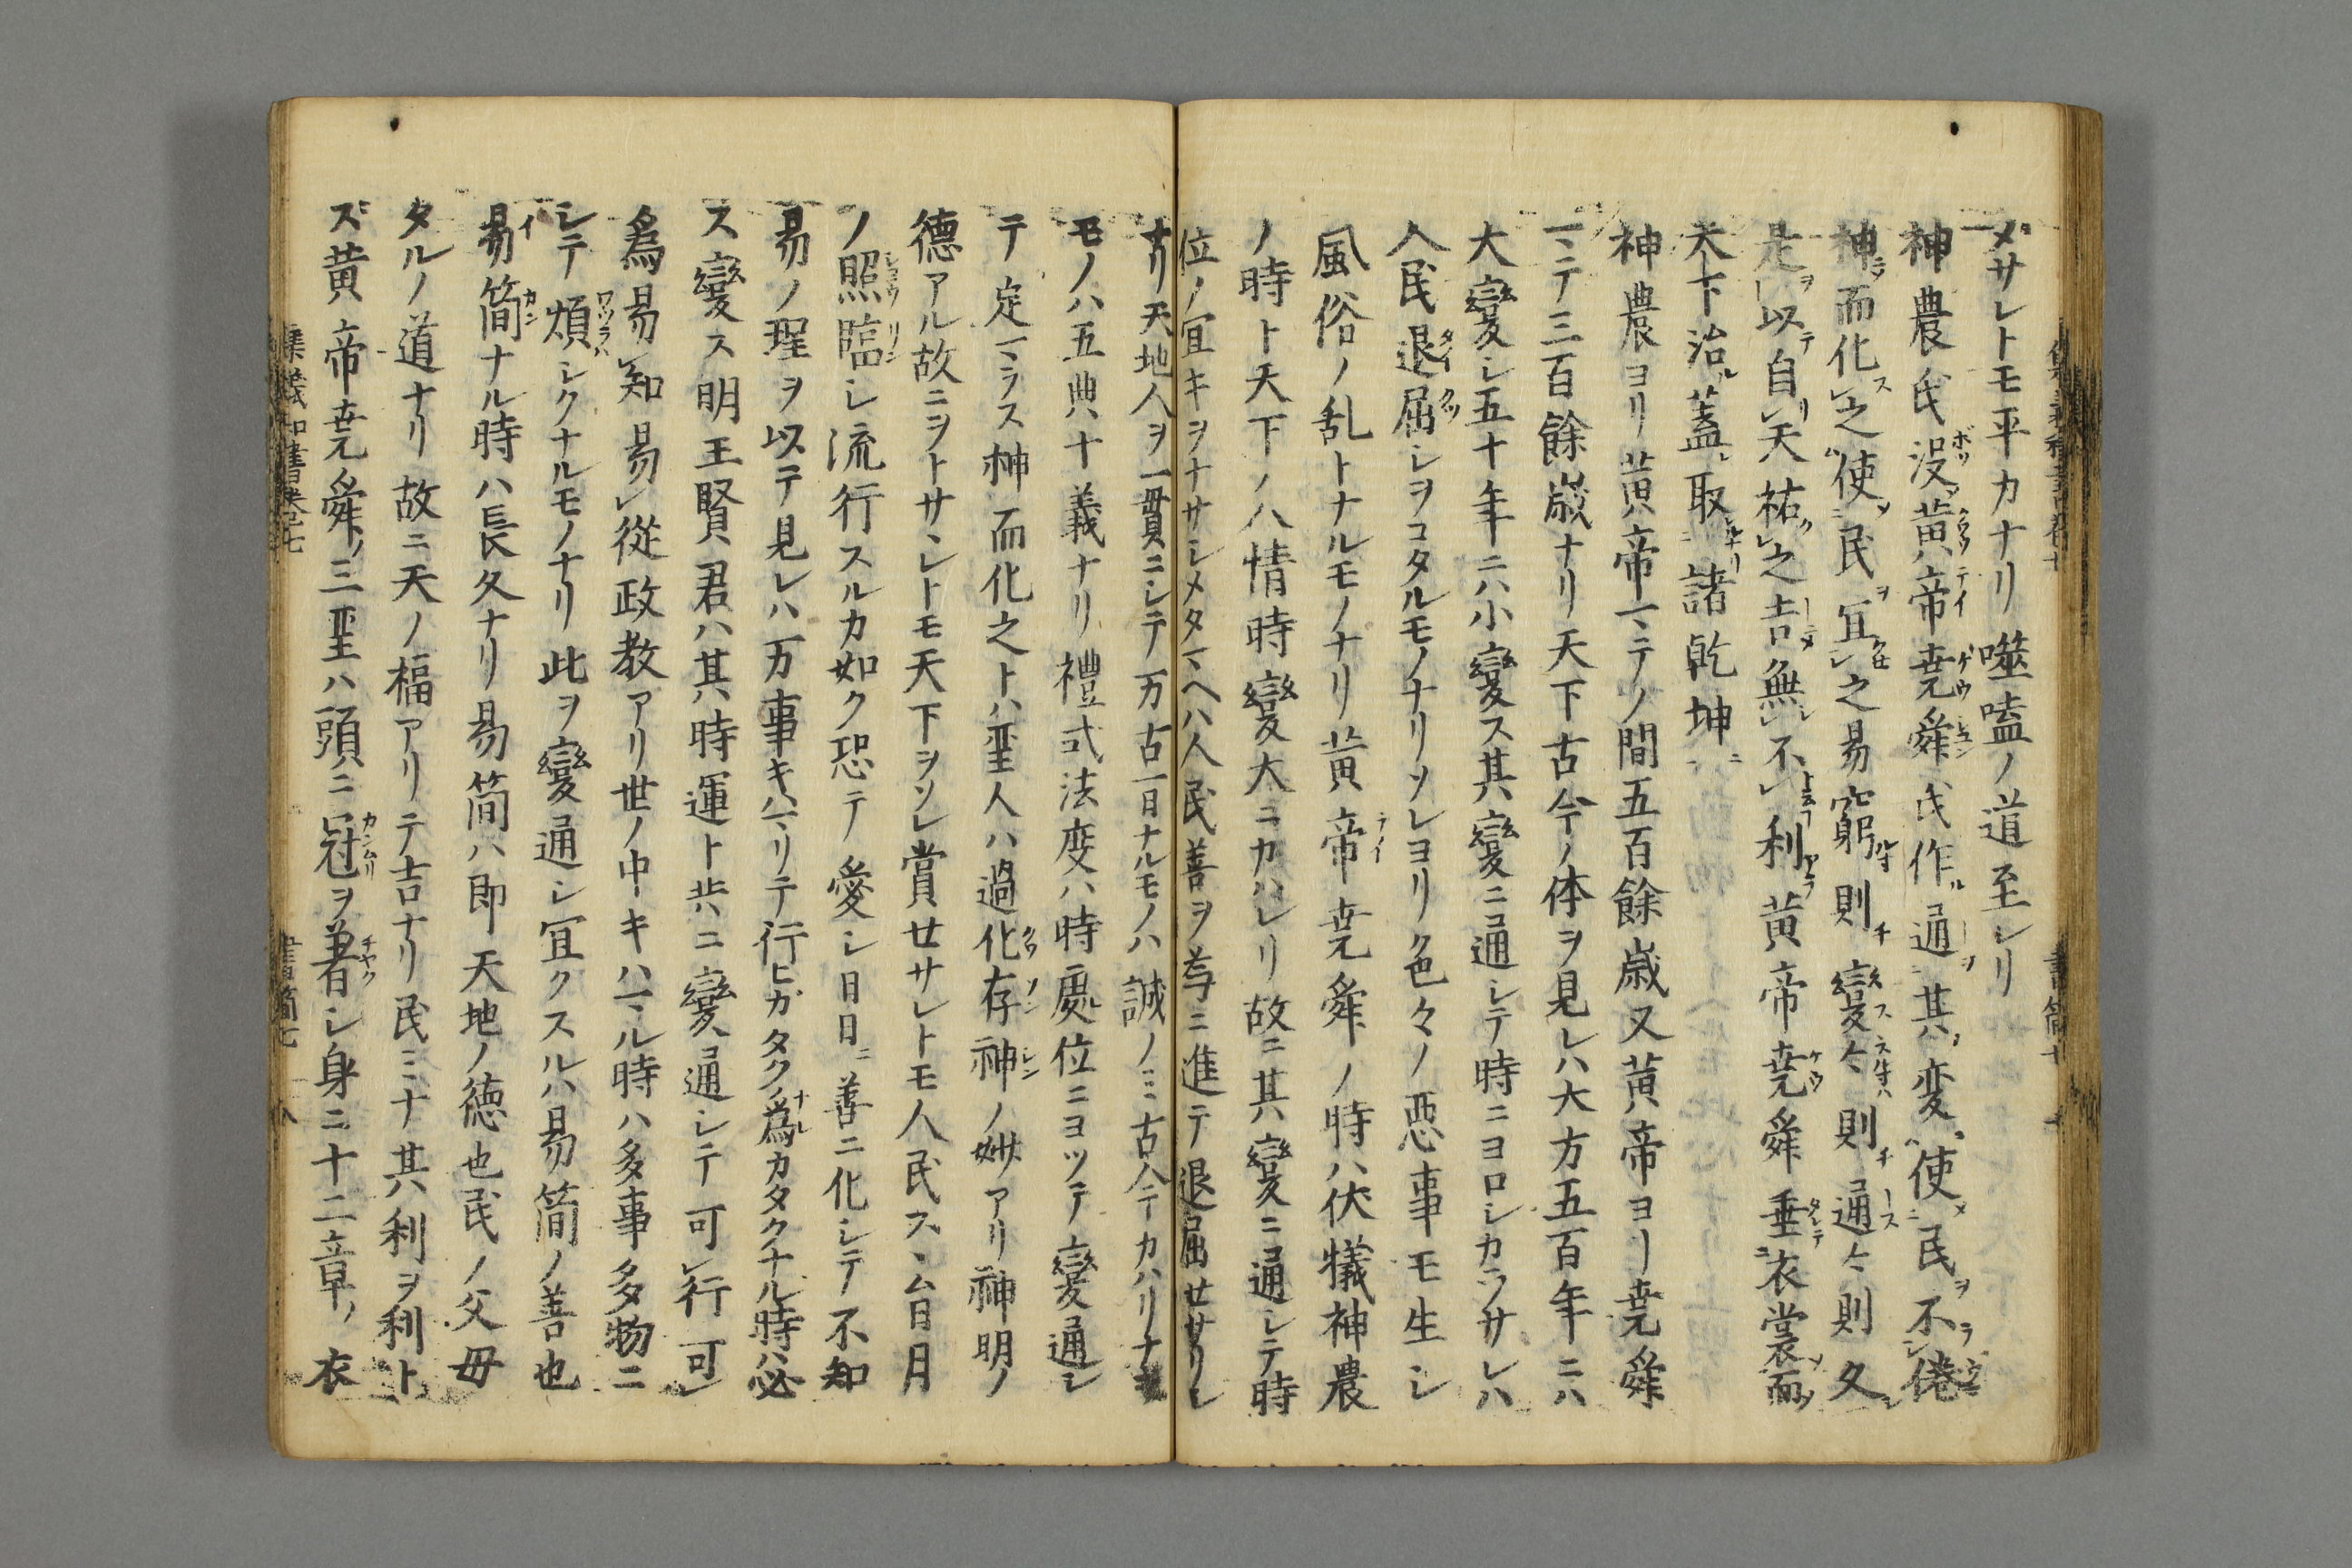 メサレトモ平カナリ噬嗑ノ道至レリ
神農氏没黄帝堯舜氏作通其変使民不倦
神而化之使民冝之易窮則變々則通々則久
是以自天祐之吉無不利黄帝堯舜垂衣裳而
天下治蓋取諸乾坤
神農ヨリ黄帝マテノ間五百餘歳又黄帝ヨリ堯舜
マテ三百餘歳ナリ天下古今ノ体ヲ見レハ大方五百年ニハ
大變シ五十年ニハ小變ス其變ニ通シテ時ニヨロシカラサレハ
人民退屈シヲコタルモノナリソレヨリ色々ノ惡事モ生シ
風俗ノ乱トナルモノナリ黄帝堯舜ノ時ハ伏犧神農
ノ時ト天下ノ人情時變大ニカハレリ故ニ其變ニ通シテ時
位ノ冝キヲナサシメタマヘハ人民善ヲ尊ニ進テ退屈セサリシ
ナリ天地人ヲ一貫ニシテ万古一日ナルモノハ誠ノミ古今テカハリナキ
モノハ五典十義ナリ禮式法度ハ時處位ニヨツテ變通シ
テ定マラス神而化之トハ聖人ハ過化存神ノ妙アリ神明ノ
德アル故ニヲトサヽレトモ天下ヲソレ賞セサレトモ人民スヽム日月
ノ照臨シ流行スルカ如ク恐テ愛シ日日ニ善ニ化シテ不知
易ノ理ヲ以テ見レハ万事キハマリテ行ヒガタク爲カタクナル時ハ必
ス變ス明王賢君ハ其時運ト共ニ變通シテ可行可
爲易知易從政教アリ世ノ中キハマル時ハ多事多物ニ
シテ煩シクナルモノナリ此ヲ變通シ冝クスルハ易簡ノ善也
易簡ナル時ハ長久ナリ易簡ハ即天地ノ徳也民ノ父母
タルノ道ナリ故ニ天ノ福アリテ吉ナリ民ミナ其利ヲ利ト
ス黄帝堯舜ノ三聖ハ頭ニ冠ヲ著シ身ニ十二章ノ衣
集義和書卷七 書簡七 八